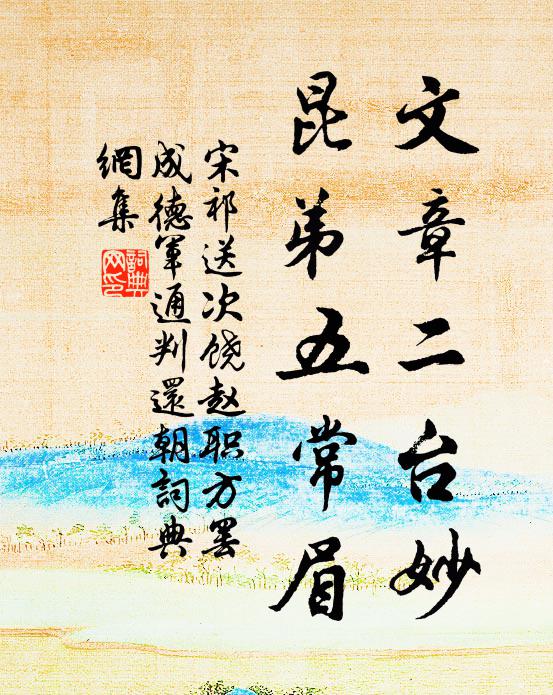 文章二台妙
昆弟五常眉
宋祁送次饶赵职方罢
成德军通判還朝詞典
網集
詞典
网印